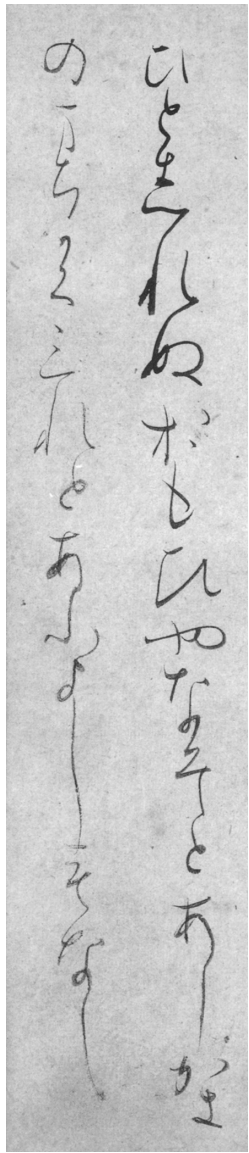 ひとしれぬおもひやなそとあしかき
のまちかけれとあふよしもなし